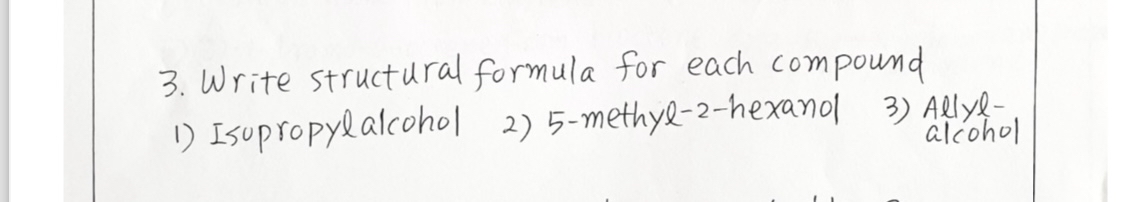 3. Write structural formula for each compound
1) Isopropylalcohol 2) 5-methyl-2-hexanol 3) Allyl-
alcohol